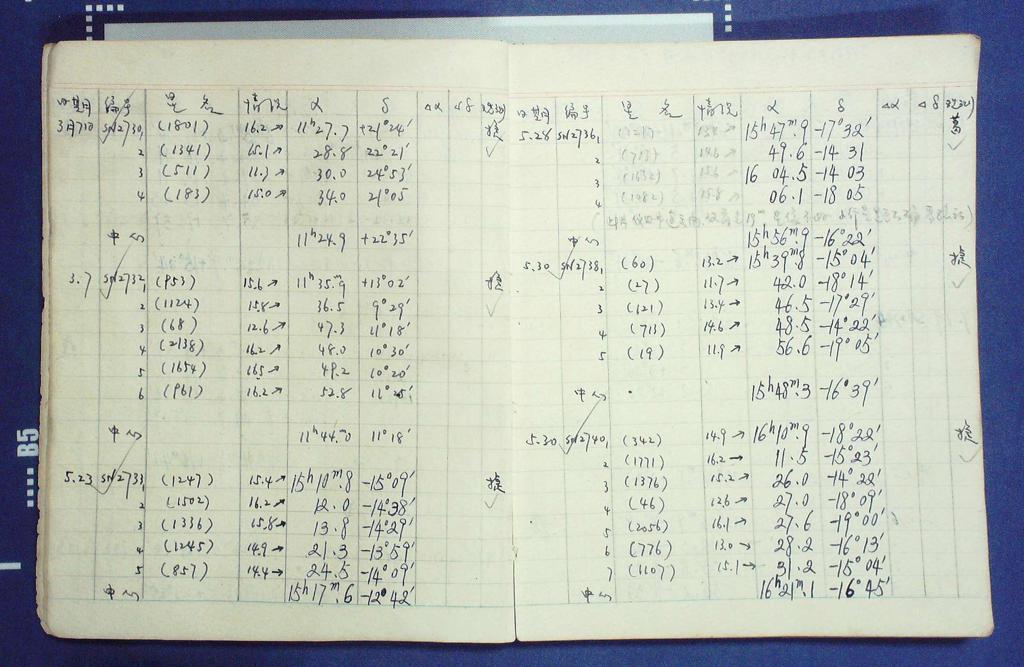 日期 编号 星名 情况 α δ Δα Δδ 观测
3月7日 SN2730,1 (1801) 16.2→ 11h27.7 +21°24′ 捷
2 (1341) 15.1→ 28.8 22°21′ ✓
3 (511) 11.1→ 30.0 24°53′
4 (183) 15.0→ 34.0 21°05
中心 11h24.9 +22°35′
3.7 SN2732,1 (953) 15.6→ 11h35.m9 +13°02′ 捷
2 (1124) 15.8→ 36.5 9°29′ ✓
3 (68) 12.6→ 47.3 11°18′
4 (2138) 16.2→ 48.0 10°30′
5 (1654) 16.5→ 49.2 10°20′
6 (961) 16.2→ 52.8 11°25′
中心 11h44.m0 11°18′
5.23 SN2733,1 (1247) 15.4→ 15h10m.8 -15°09′ 捷
2 (1502) 16.2→ 12.0 -14°38′ ✓
3 (1336) 15.8→ 13.8 -14°29′
4 (1245) 14.9→ 21.3 -13°59′
5 (857) 14.4→ 24.5 -14°09′
中心 15h17m.6 -12°42′
日期 编号 星名 情况 α δ Δα Δδ 观测
5.28 SN2736,1 15h47m.9 -17°32′ 葛
2 (713) 14.6→ 49.6 -14 31 ✓
3 (1632) 16 04.5 -14 03
4 (1082) 15.8→ 06.1 -18 05
中心 15h56m.9 -16°22′
5.30 SN2738,1 (60) 13.2→ 15h39m.8 -15°04′ 捷
2 (27) 11.7→ 42.0 -18°14′ ✓
3 (121) 13.4→ 46.5 -17°29′
4 (713) 14.6→ 48.5 -14°22′
5 (19) 11.9→ 56.6 -19°05′
中心 15h48m.3 -16°39′
5.30 SN2740,1 (342) 14.9→ 16h10m.9 -18°22′ 捷
2 (1771) 16.2→ 11.5 -15°23′ ✓
3 (1376) 15.2→ 26.0 -14°22′
4 (46) 12.6→ 27.0 -18°09′
5 (2056) 16.1→ 27.6 -19°00′
6 (776) 13.0→ 28.2 -16°13′
7 (1107) 15.1→ 31.2 -15°04′
中心 16h21m.1 -16°45′
B5